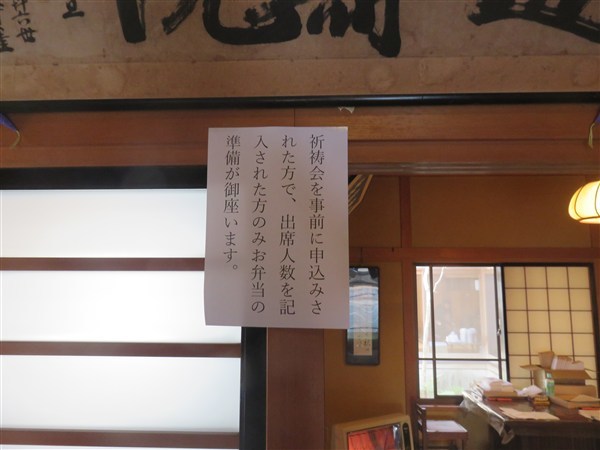 祈祷会を事前に申込みさ
れた方で、出席人数を記
入された方のみお弁当の
準備が御座います。